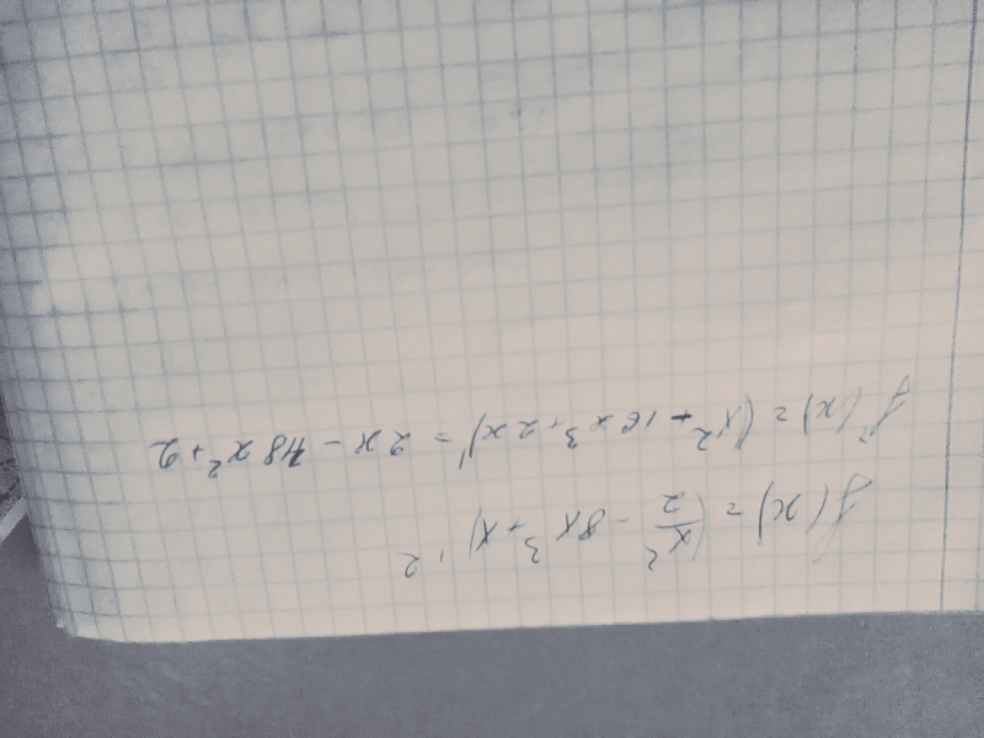 f(x) = (x²/2 - 8x³ + x) · 2
f'(x) = (x² - 16x³ + 2x)' = 2x - 48x² + 2